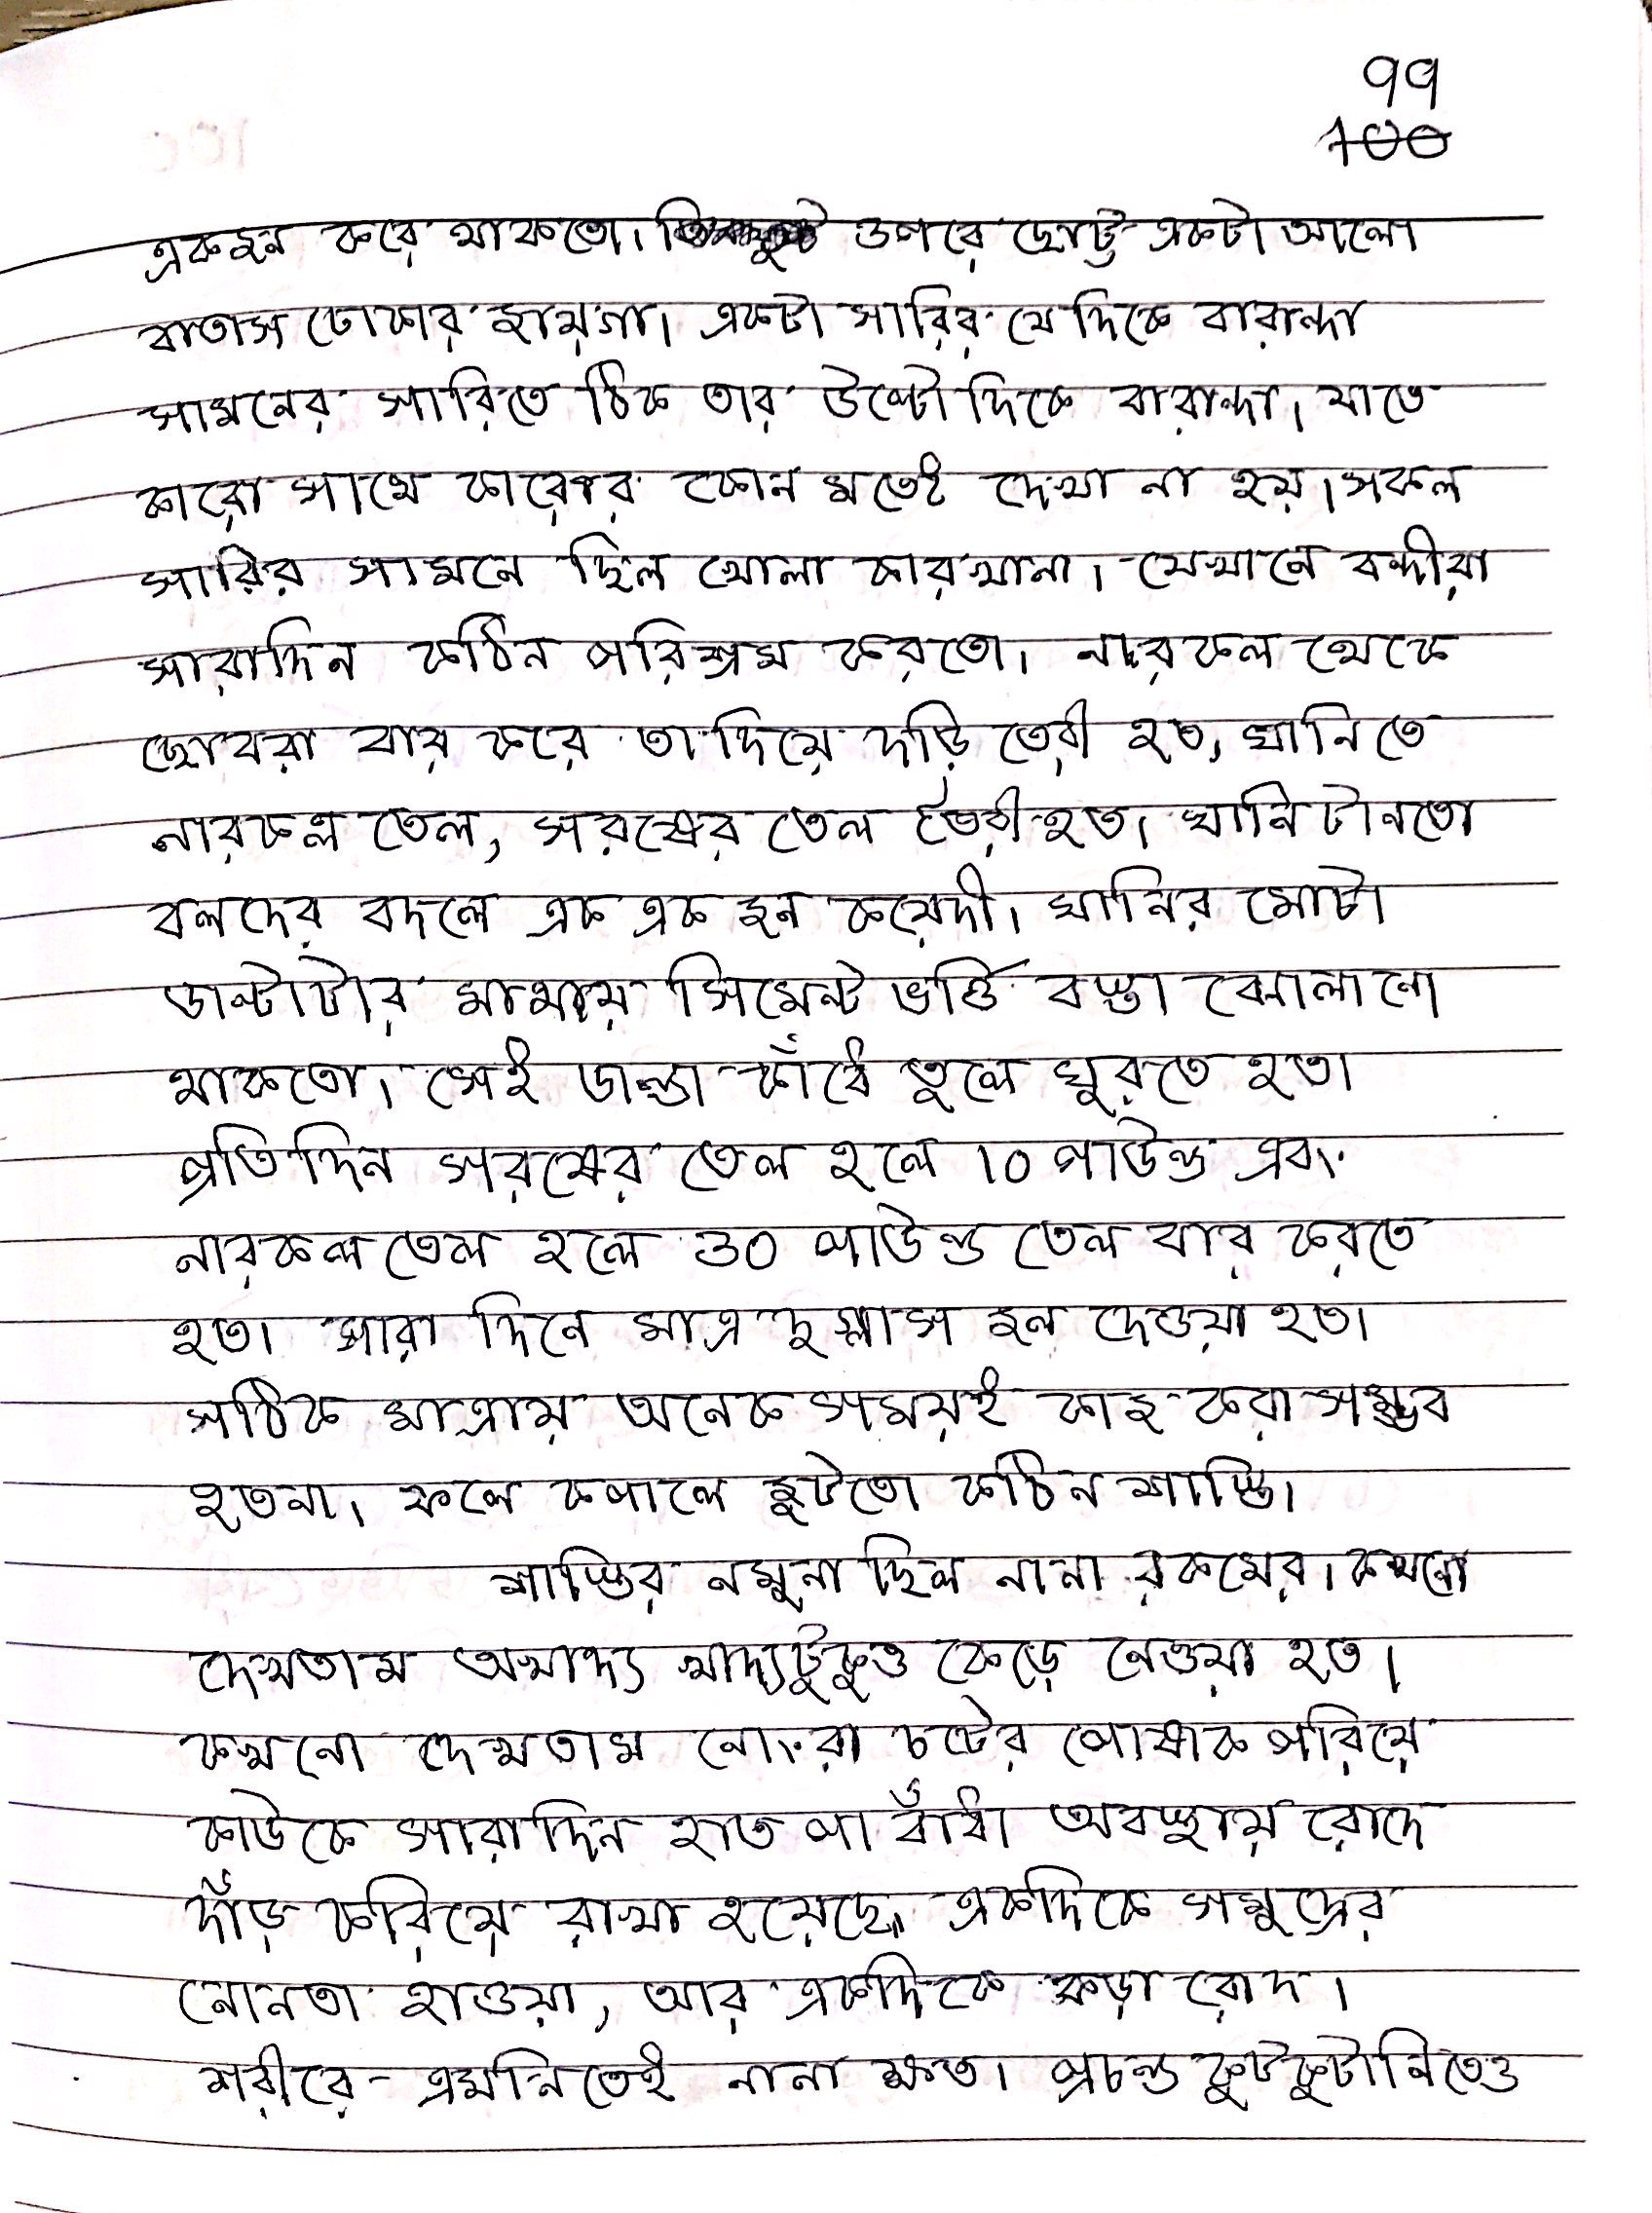 ৭৭
100
একজন করে থাকতো। উপরে ছোট্ট একটা আলো
বাতাস ঢোকার জায়গা। একটা সারির যে দিকে বারান্দা
সামনের সারিতে ঠিক তার উল্টো দিকে বারান্দা। যাতে
কারো সাথে কারোর কোন মতেই দেখা না হয়। সকল
সারির সামনে ছিল খোলা কারখানা। যেখানে বন্দীরা
সারাদিন কঠিন পরিশ্রম করতো। নারকল থেকে
ছোবরা বার করে তা দিয়ে দড়ি তৈরী হত, ঘানিতে
নারকল তেল, সরষের তেল তৈরী হত। ঘানি টানতো
বলদের বদলে এক এক জন কয়েদী। ঘানির মোটা
ডান্টাটার মাথায় সিমেন্ট ভর্ত্তি বস্তা ঝোলানো
থাকতো। সেই ডান্ডা কাঁধে তুলে ঘুরতে হত।
প্রতিদিন সরষের তেল হলে 10 পাউন্ড এবং
নারকল তেল হলে 30 পাউন্ড তেল বার করতে
হত। সারা দিনে মাত্র দু গ্লাস জল দেওয়া হত।
সঠিক মাত্রায় অনেক সময়ই কাজ করা সম্ভব
হতনা। ফলে কপালে জুটতো কঠিন শাস্তি।
শাস্তির নমুনা ছিল নানা রকমের। কখনো
দেখতাম অখাদ্য খাদ্যটুকুও কেড়ে নেওয়া হত।
কখনো দেখতাম নোংরা চটের পোষাক পরিয়ে
কাউকে সারাদিন হাত পা বাঁধা অবস্থায় রোদে
দাঁড় করিয়ে রাখা হয়েছে। একদিকে সমুদ্রের
নোনতা হাওয়া, আর একদিকে কড়া রোদ।
শরীরে এমনিতেই নানা ক্ষত। প্রচন্ড কুটকুটানিতেও